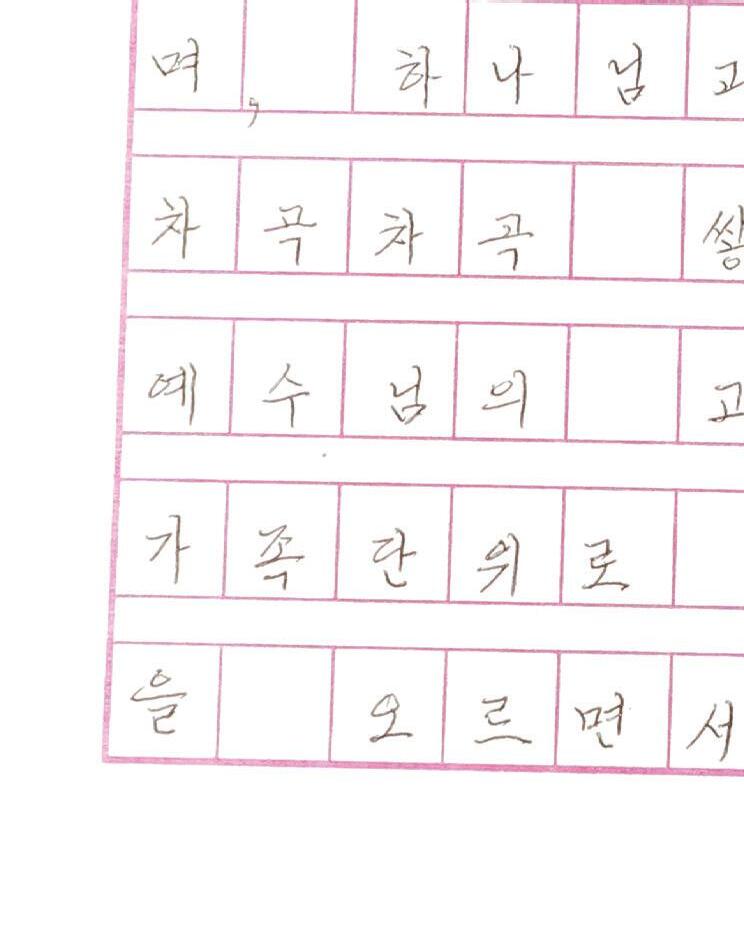 며, 하나님고
차곡차곡 쌓
예수님의 고
가족단위로
을 오르면서